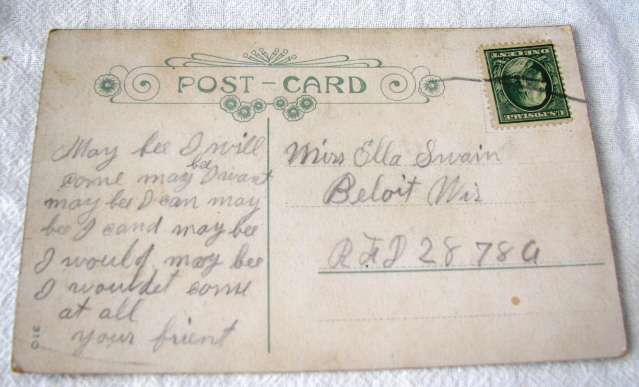 POST-CARD
ONE CENT
U.S. POSTAGE
May bee I will
come may be I want
may be I can may
bee I cand may bee
I would may bee
I wouldet come
at all
your frient
Miss Ella Swain
Beloit Wis
RFD 28 78a
310